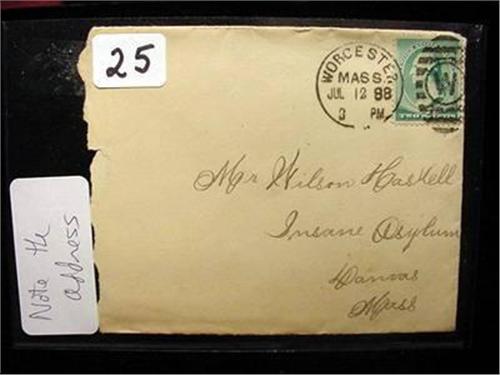 25
WORCESTER
MASS.
JUL 12 88
3 PM
W
Mr Wilson Haskell
Insane Asylum
Danvas
Mass
Note the
address